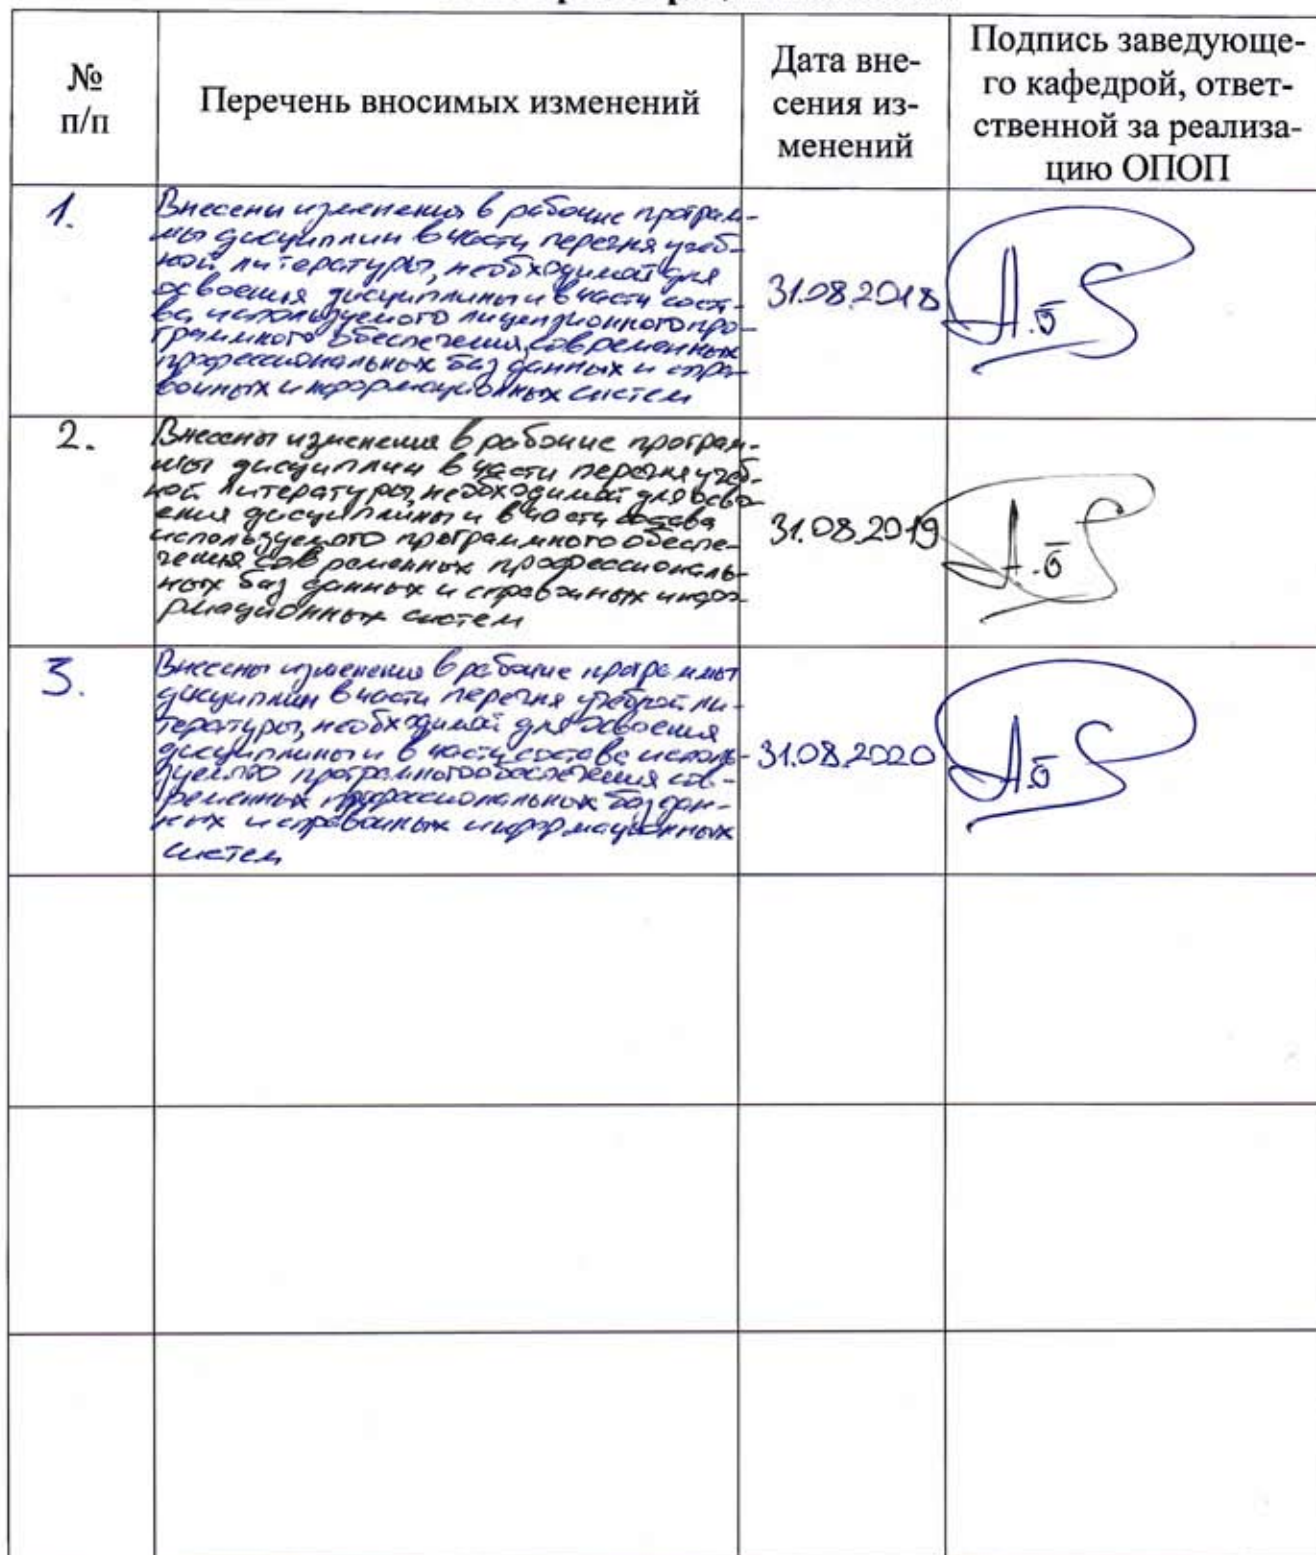 №
п/п
Перечень вносимых изменений
Дата вне-
сения из-
менений
Подпись заведующе-
го кафедрой, ответ-
ственной за реализа-
цию ОПОП
1.
Внесены изменения в рабочие програм-
мы дисциплин в части перечня учеб-
ной литературы, необходимой для
освоения дисциплины и в части соста-
ва используемого лицензионного про-
граммного обеспечения, современных
профессиональных баз данных и спра-
вочных информационных систем
31.08.2018
2.
Внесены изменения в рабочие програм-
мы дисциплин в части перечня учеб-
ной литературы, необходимой для осво-
ения дисциплины и в части состава
используемого программного обеспе-
чения современных профессиональ-
ных баз данных и справочных инфо-
рмационных систем
31.08.2019
3.
Внесены изменения в рабочие программы
дисциплин в части перечня учебной ли-
тературы, необходимой для освоения
дисциплины и в части состава исполь-
зуемого программного обеспечения сов-
ременных профессиональных баз дан-
ных и справочных информационных
систем
31.08.2020